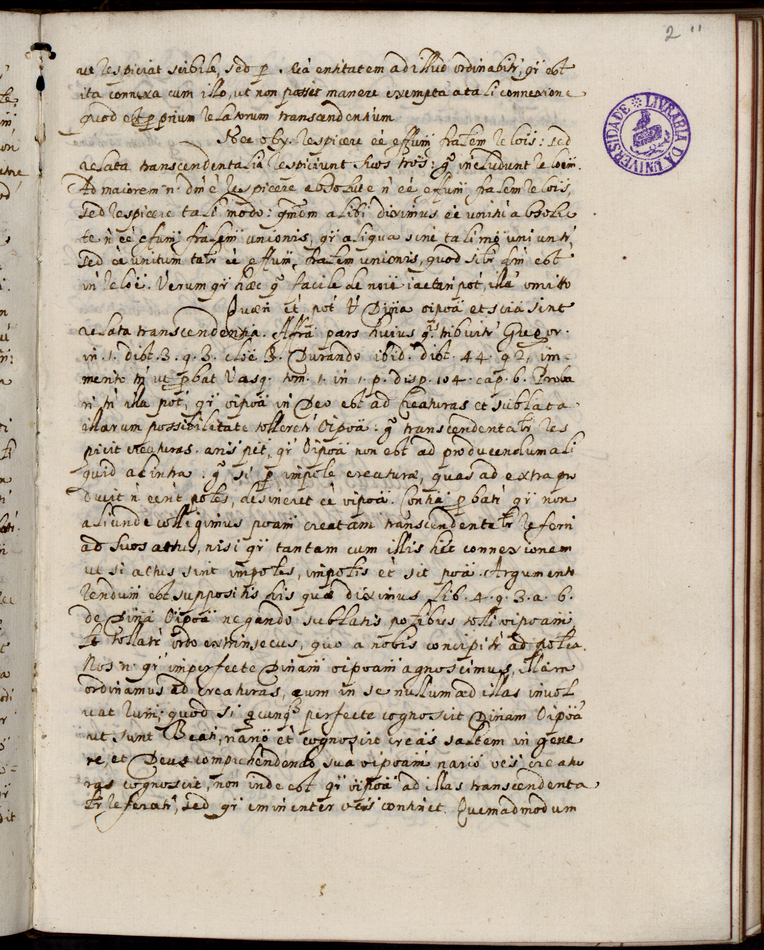 2
LIVRARIA DA UNIVERSIDADE
ut respiciat scibile, sed p. suã entitatem ad illud ordinabitr, qr est
ita connexa cum illo, ut non posset manere exempta a tali connexione
quod est p prium relatorum transcendentium
Nec obx. respicere ẽe effum fralem relois: sed
relata transcendentalia respiciunt suos tros: g includunt reloem.
Ad maiorem n. dme respicere absolute n ẽe effum fralem relois,
sed respicere tali modo: qmdm alibi diximus ẽe uniri absolu
te n ẽe efum fralem unionis, qr aliqua sine tali mo uniuntr,
sed ẽe unitum talr ẽe effum fralem unionis, quod silr qm est
in reloe. Verum qr hæc q facile de noie iactari pot, illa omitto
Quæri et pot ut Dina oipoa et scia sint
relata transcendentia. Affra pars huius q tribuitr Gregor.
in 1. dist. 3. q. 3. Durando ibid. dist. 44. q 2, im-
merito tn ut pbat Vasq. tom. 1. in 1. p. disp. 104. cap. 6. Proba
ri tn illa pot, qr oipoa in Deo est ad creaturas et sublata
illarum possibilitate tolleretr oipoa: g transcendentalr res
picit creaturas. anis pet, qr oipoa non est ad producendum ali
quid ad intra: g si p impole creaturæ, quas ad extra pro
ducit n eent poles, desineret ẽe oipoa. Contra pbatr qr non
aliunde colligimus poam creatam transcendentalr referri
ad suos actus, nisi qr tantam cum illis het connexionem
ut si actus sint impoles, impolis et sit poa. Argumento
rendum est suppositis iis quæ diximus lib. 4. q. 3. a. 6.
de Dina oipoa negando sublatis potibus tolli oipoam,
et tollatr ordo extrinsecus, quo a nobis concipitr ad potia.
Nos n. qr imperfecte Dinam oipoam agnoscimus, illam
ordinamus ad creaturas, cum in se nullum ad illas invol
vat rum; quod si qcunqs perfecte cognoscit Dinam oipoa
ut sunt Beati, nario et cognoscit creas saltem in gene
re, et Deus comprehendendo sua oipoam nario oes creatu
ras cognoscit, non inde est qr oipoa ad illas transcendenta
lr referatr, sed qr eminenter oes continet. Quemadmodum